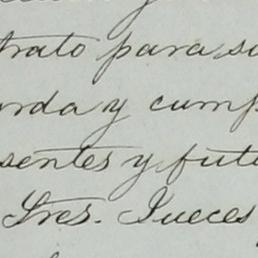 trato para su
arda y cump
sentes y futu
Sres. Jueces